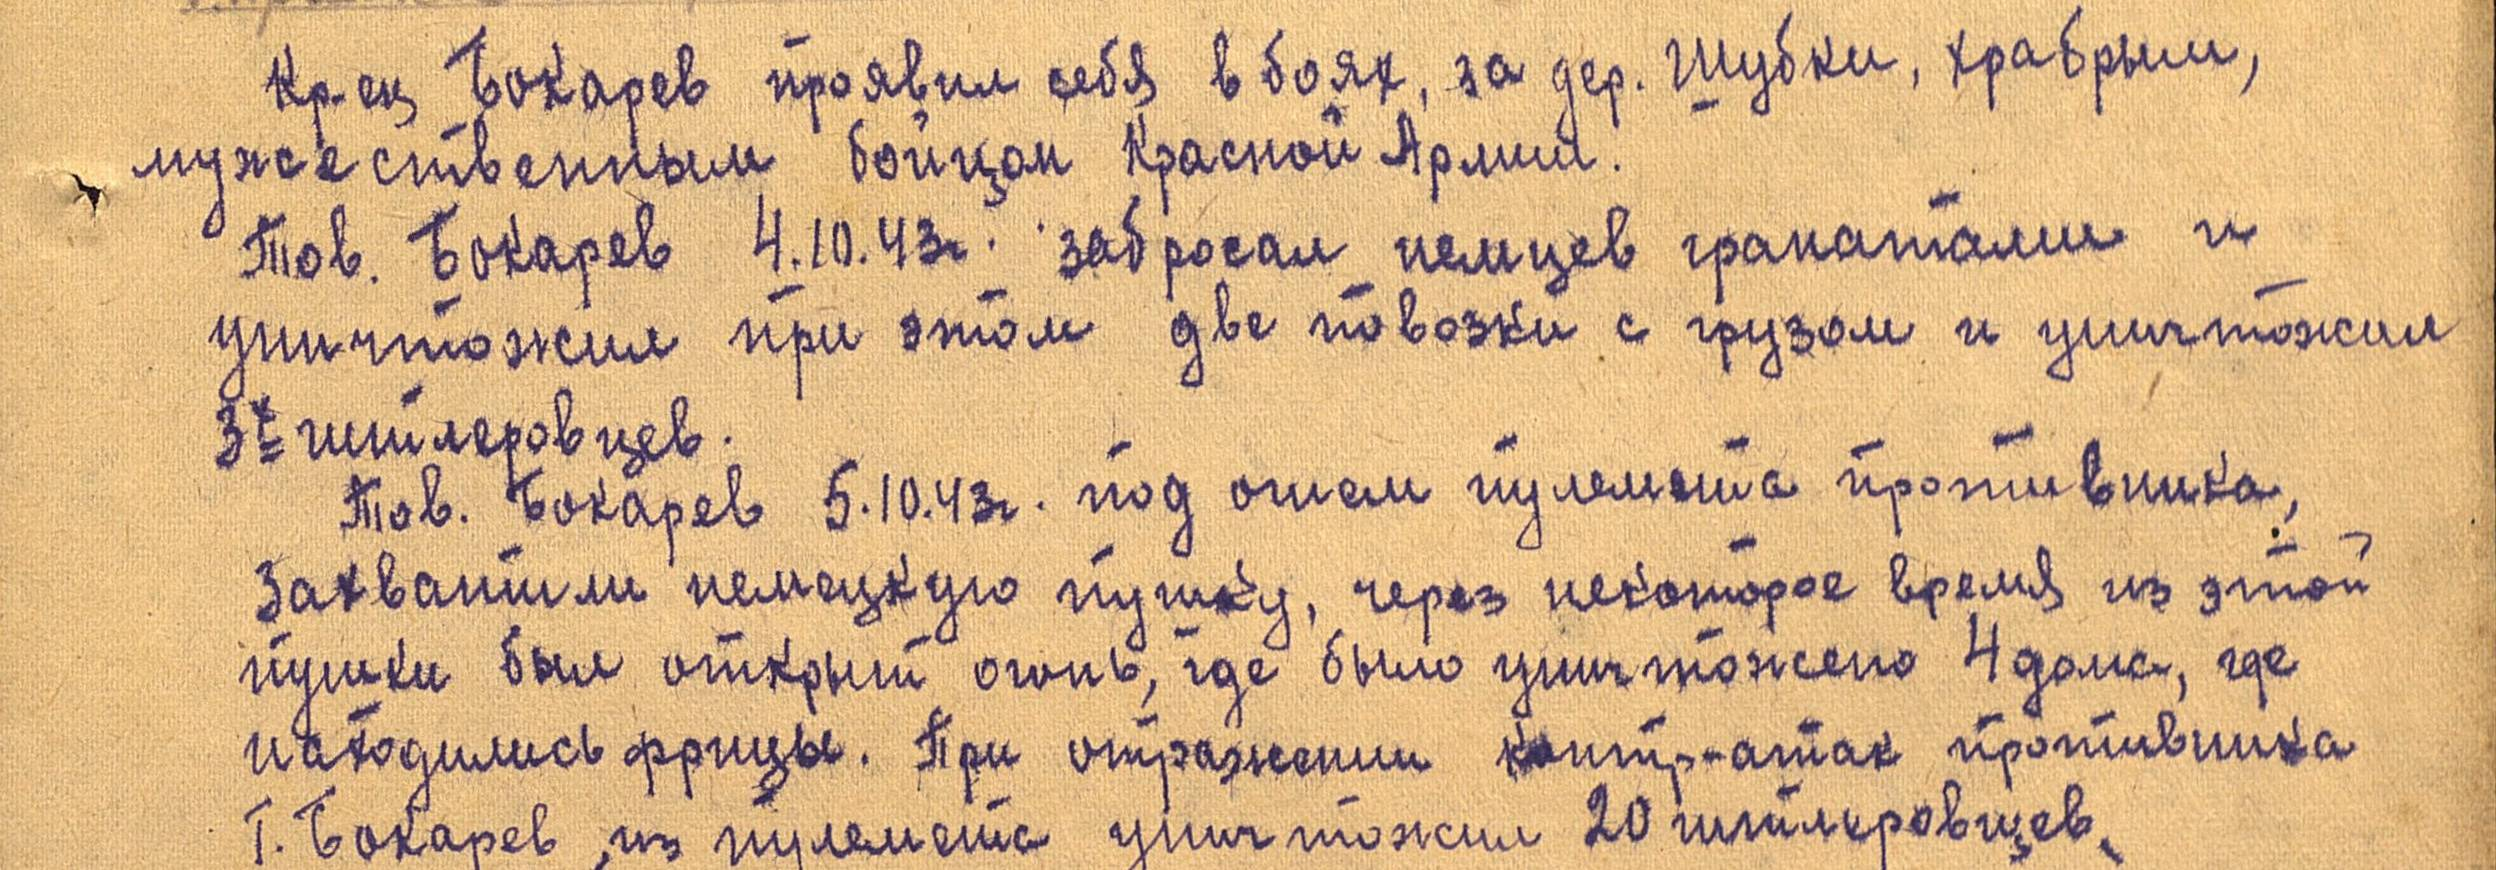 Кр-ец Бокарев проявил себя в боях, за дер. Шубки, храбрым,
мужественным бойцом Красной Армии.
Тов. Бокарев 4.10.43г. забросал немцев гранатами и
уничтожил при этом две повозки с грузом и уничтожил
3х гитлеровцев.
Тов. Бокарев 5.10.43г. под огнем пулемета противника,
захватили немецкую пушку, через некоторое время из этой
пушки был открыт огонь, где было уничтожено 4 дома, где
находились фрицы. При отражении контр-атак противника
т. Бокарев, из пулемета уничтожил 20 гитлеровцев.